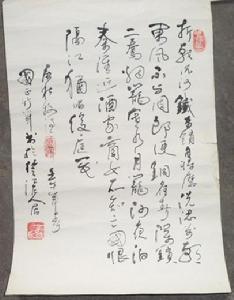 折戟沉沙鐵未銷自將磨洗認前朝
東風不與周郎便銅雀春深鎖
二喬烟籠寒水月籠沙夜泊
秦淮近酒家商女不知亡國恨
隔江猶唱後庭花